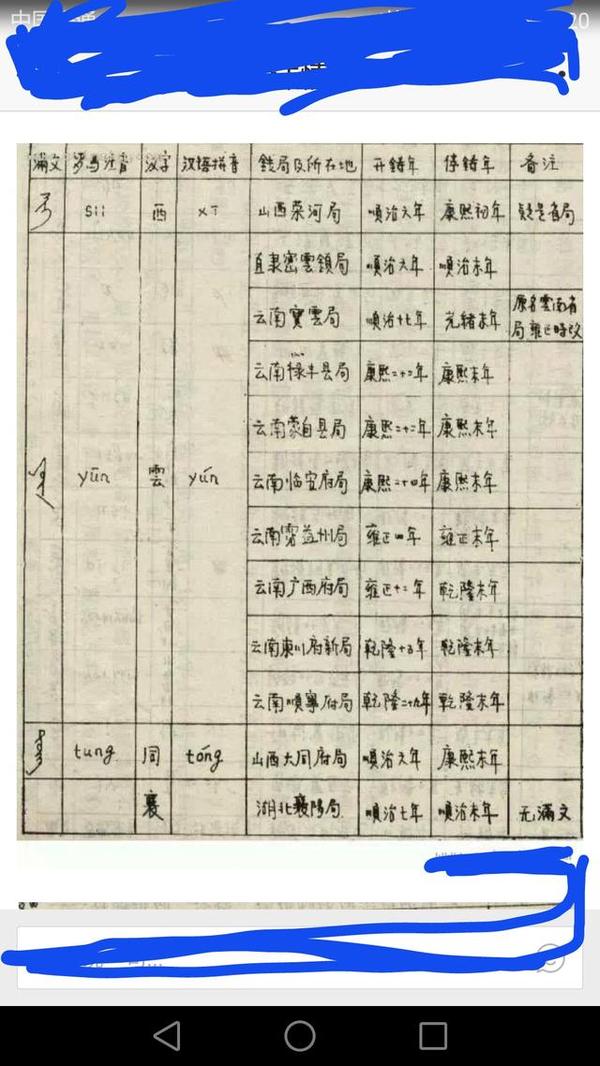 中国
20
滿文 罗马注音 汉字 汉语拼音 錢局及所在地 开鋳年 停鋳年 备注
sii 西 xī 山西荣河局 順治六年 康熙初年 疑是省局
直隶密雲鎮局 順治六年 順治末年
云南寶雲局 順治十七年 光緒末年 原名雲南省
局雍正時改
云南禄丰县局 康熙二十二年 康熙末年
云南蒙自县局 康熙二十二年 康熙末年
yūn 雲 yún 云南临安府局 康熙二十四年 康熙末年
云南霑益州局 雍正四年 雍正末年
云南广西府局 雍正十二年 乾隆末年
云南東川府新局 乾隆十五年 乾隆末年
云南順寧府局 乾隆二十九年 乾隆末年
tung 同 tóng 山西大同府局 順治六年 康熙末年
襄 湖北襄陽局 順治七年 順治末年 无滿文